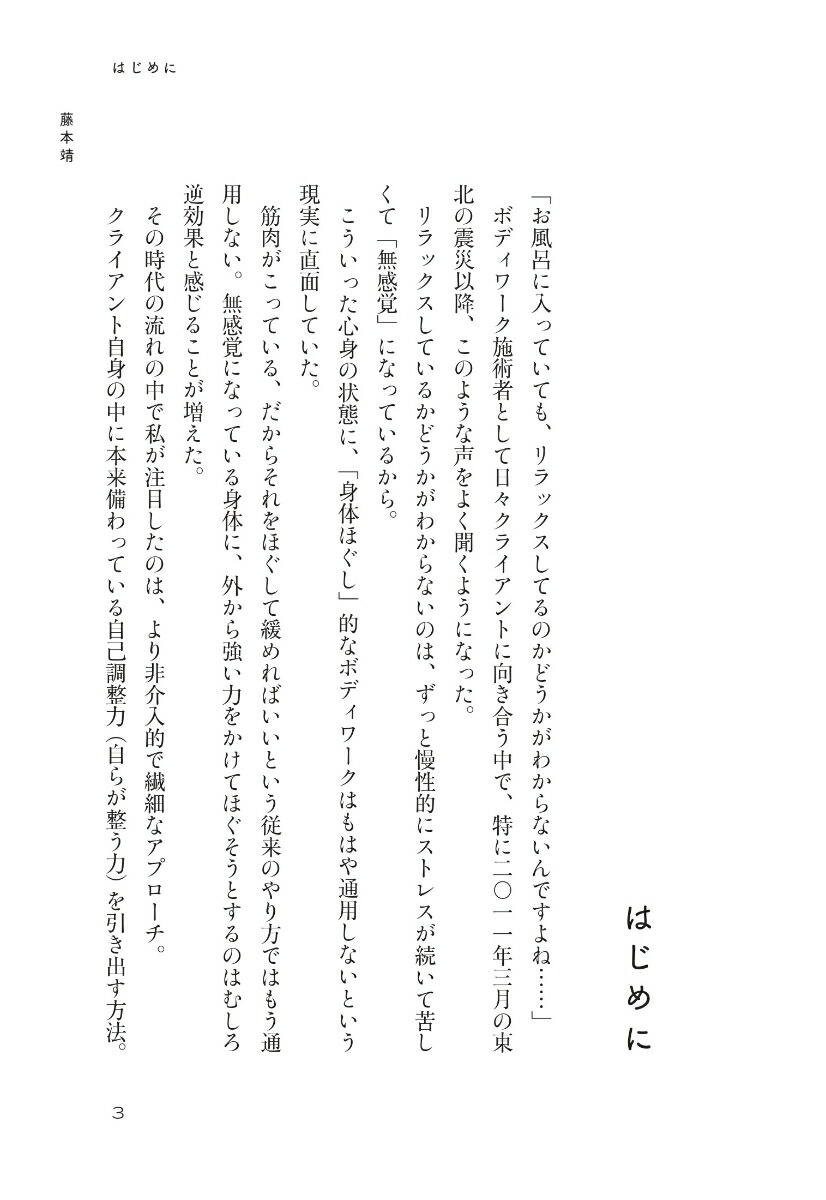 はじめに
藤本靖
はじめに
「お風呂に入っていても、リラックスしてるのかどうかがわからないんですよね……」
ボディワーク施術者として日々クライアントに向き合う中で、特に二〇一一年三月の東
北の震災以降、このような声をよく聞くようになった。
リラックスしているかどうかがわからないのは、ずっと慢性的にストレスが続いて苦し
くて「無感覚」になっているから。
こういった心身の状態に、「身体ほぐし」的なボディワークはもはや通用しないという
現実に直面していた。
筋肉がこっている、だからそれをほぐして緩めればいいという従来のやり方ではもう通
用しない。無感覚になっている身体に、外から強い力をかけてほぐそうとするのはむしろ
逆効果と感じることが増えた。
その時代の流れの中で私が注目したのは、より非介入的で繊細なアプローチ。
クライアント自身の中に本来備わっている自己調整力（自らが整う力）を引き出す方法。
3